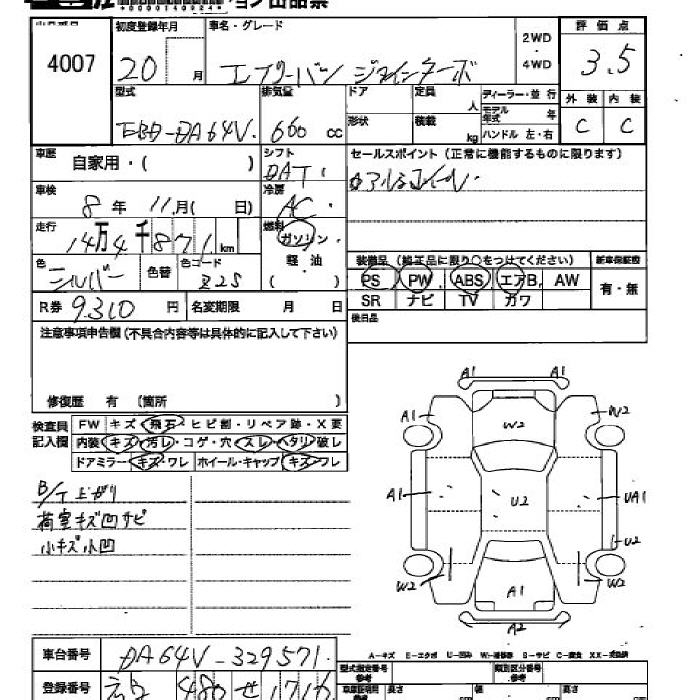 出品票
4007
初度登録年月
20 月
車名・グレード
エブリーバン ジョインターボ
2WD
・
4WD
評価点
3.5
型式
EBD-DA64V
排気量
660 cc
ドア
形状
定員 人
積載 kg
ディーラー・並行
モデル年式 年
ハンドル 左・右
外装 内装
C C
車歴 自家用・( )
シフト
DAT
セールスポイント(正常に機能するものに限ります)
車検
8 年 11 月( 日)
冷房
AC
走行
14万4千871km
燃料
ガソリン・
軽油
( )
色
シルバー
色替
色コード
Z2S
装備品(純正品に限り○をつけてください)
新車保証書
PS PW ABS エアB AW
SR ナビ TV カワ
有・無
R券 9310 円
名変期限 月 日
後日品
注意事項申告欄(不具合内容等は具体的に記入して下さい)
修復歴 有 (箇所 )
検査員
記入欄
FW キズ・飛石・ヒビ割・リペア跡・X要
内装 キズ・汚レ・コゲ・穴・スレ・ヘタリ・破レ
ドアミラー キズ・ワレ ホイール・キャップ キズ・ワレ
B/T上がり
荷室キズ凹サビ
小キズ小凹
A1 A1
A1 W2 W2
A1 U2 UA1
U2
W2 A1 W2
A2
A-キズ E-エクボ U-凹み W-補修跡 S-サビ C-腐食 XX-交換済
車台番号 DA64V-329571
登録番号 480 せ 1716
型式指定番号
類別区分番号
車庫証明用
長さ cm 幅 cm 高さ cm